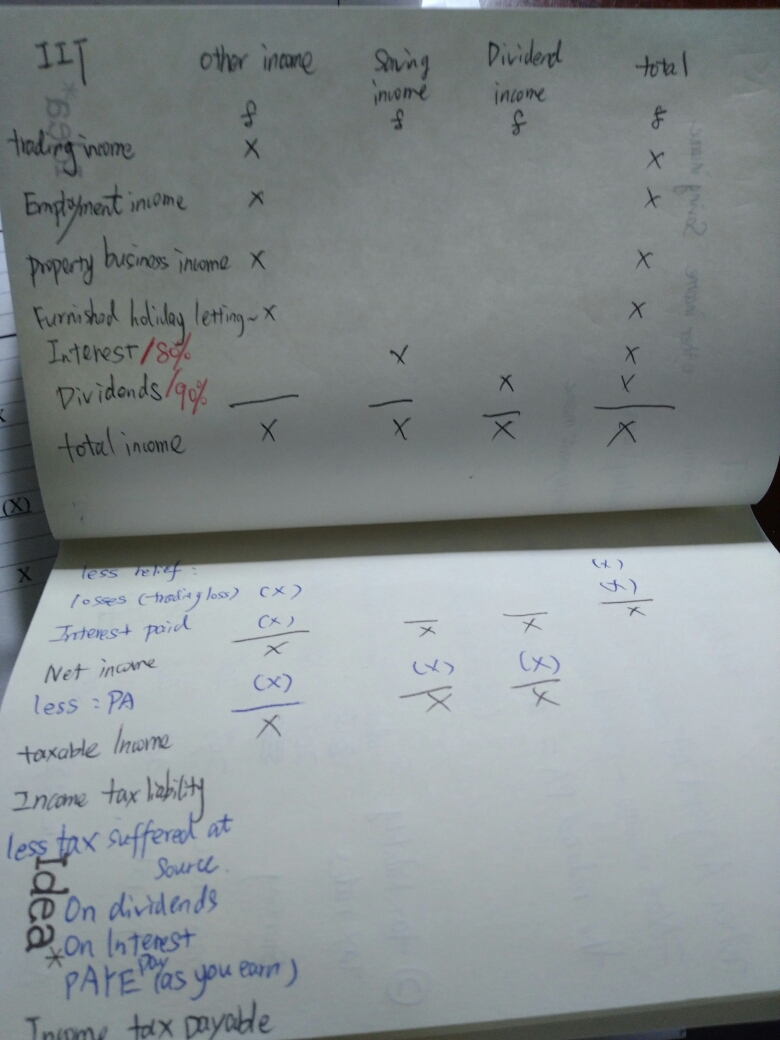 IIT other income Saving income Dividend income total
£ £ £ £
trading income X X
Employment income X X
property business income X X
Furnished holiday letting~ X X
Interest /80% X X
Dividends /90% X X
total income X X X X
(X)
X
less relief: (X)
losses (trading loss) (X) (X)
Interest paid (X) X
Net income X X X
less: PA (X) (X) (X)
taxable Income X X X
Income tax liability
less tax suffered at
source.
On dividends
On Interest
PAYE pay (as you earn)
Income tax payable
Idea*